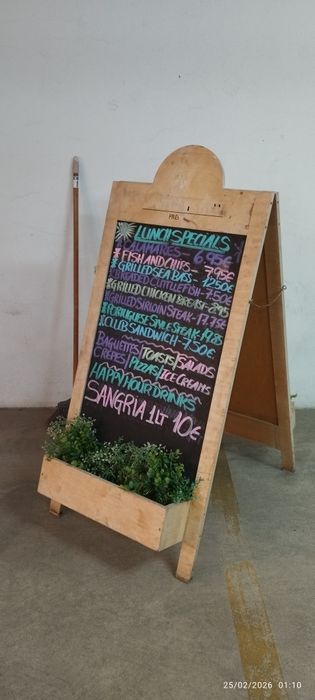 LUNCH SPECIALS
CALAMARES - 6.95€
FISH AND CHIPS - 7.95€
GRILLED SEA BASS - 12.50€
BREADED CUTTLEFISH - 7.50€
GRILLED CHICKEN BREAST - 8.95
GRILLED SIRLOIN STEAK - 17.75€
PORTUGUESE STYLE STEAK -
CLUB SANDWICH - 7.50€
BAGUETTES | TOASTS | SALADS
CRÊPES | PIZZAS | ICE CREAMS
HAPPY HOUR DRINKS
SANGRIA 1LT 10€
25/02/2026 01:10